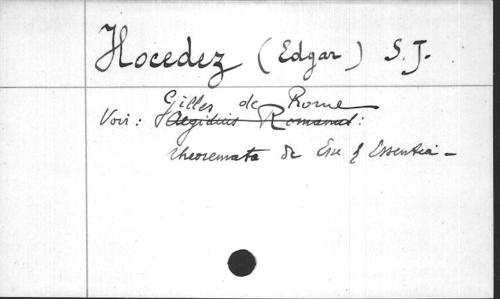 Hocedez (Edgar) S.J.
Gilles de Rome
Voir : Aegidius Romanus :
theoremata de Esse & Essentia -